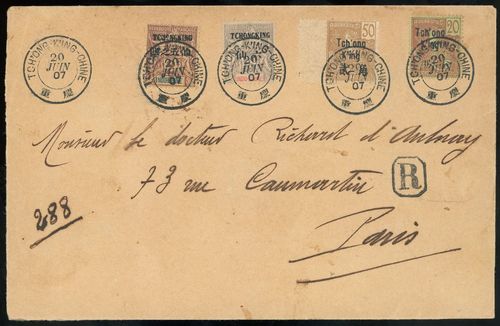 TCH'ONG-K'ING-CHINE
20
JUIN
07
重慶
TCHONGKING
TCH'ONG-K'ING-CHINE
20
JUIN
07
重慶
TCHONGKING
TCH'ONG-K'ING-CHINE
20
JUIN
07
重慶
50
Tch'ong
K'ing
TCH'ONG-K'ING-CHINE
20
JUIN
07
重慶
20
Tch'ong
K'ing
TCH'ONG-K'ING-CHINE
20
JUIN
07
重慶
Monsieur le docteur Richard d'Aulnay
73 rue Caumartin
R
288
Paris